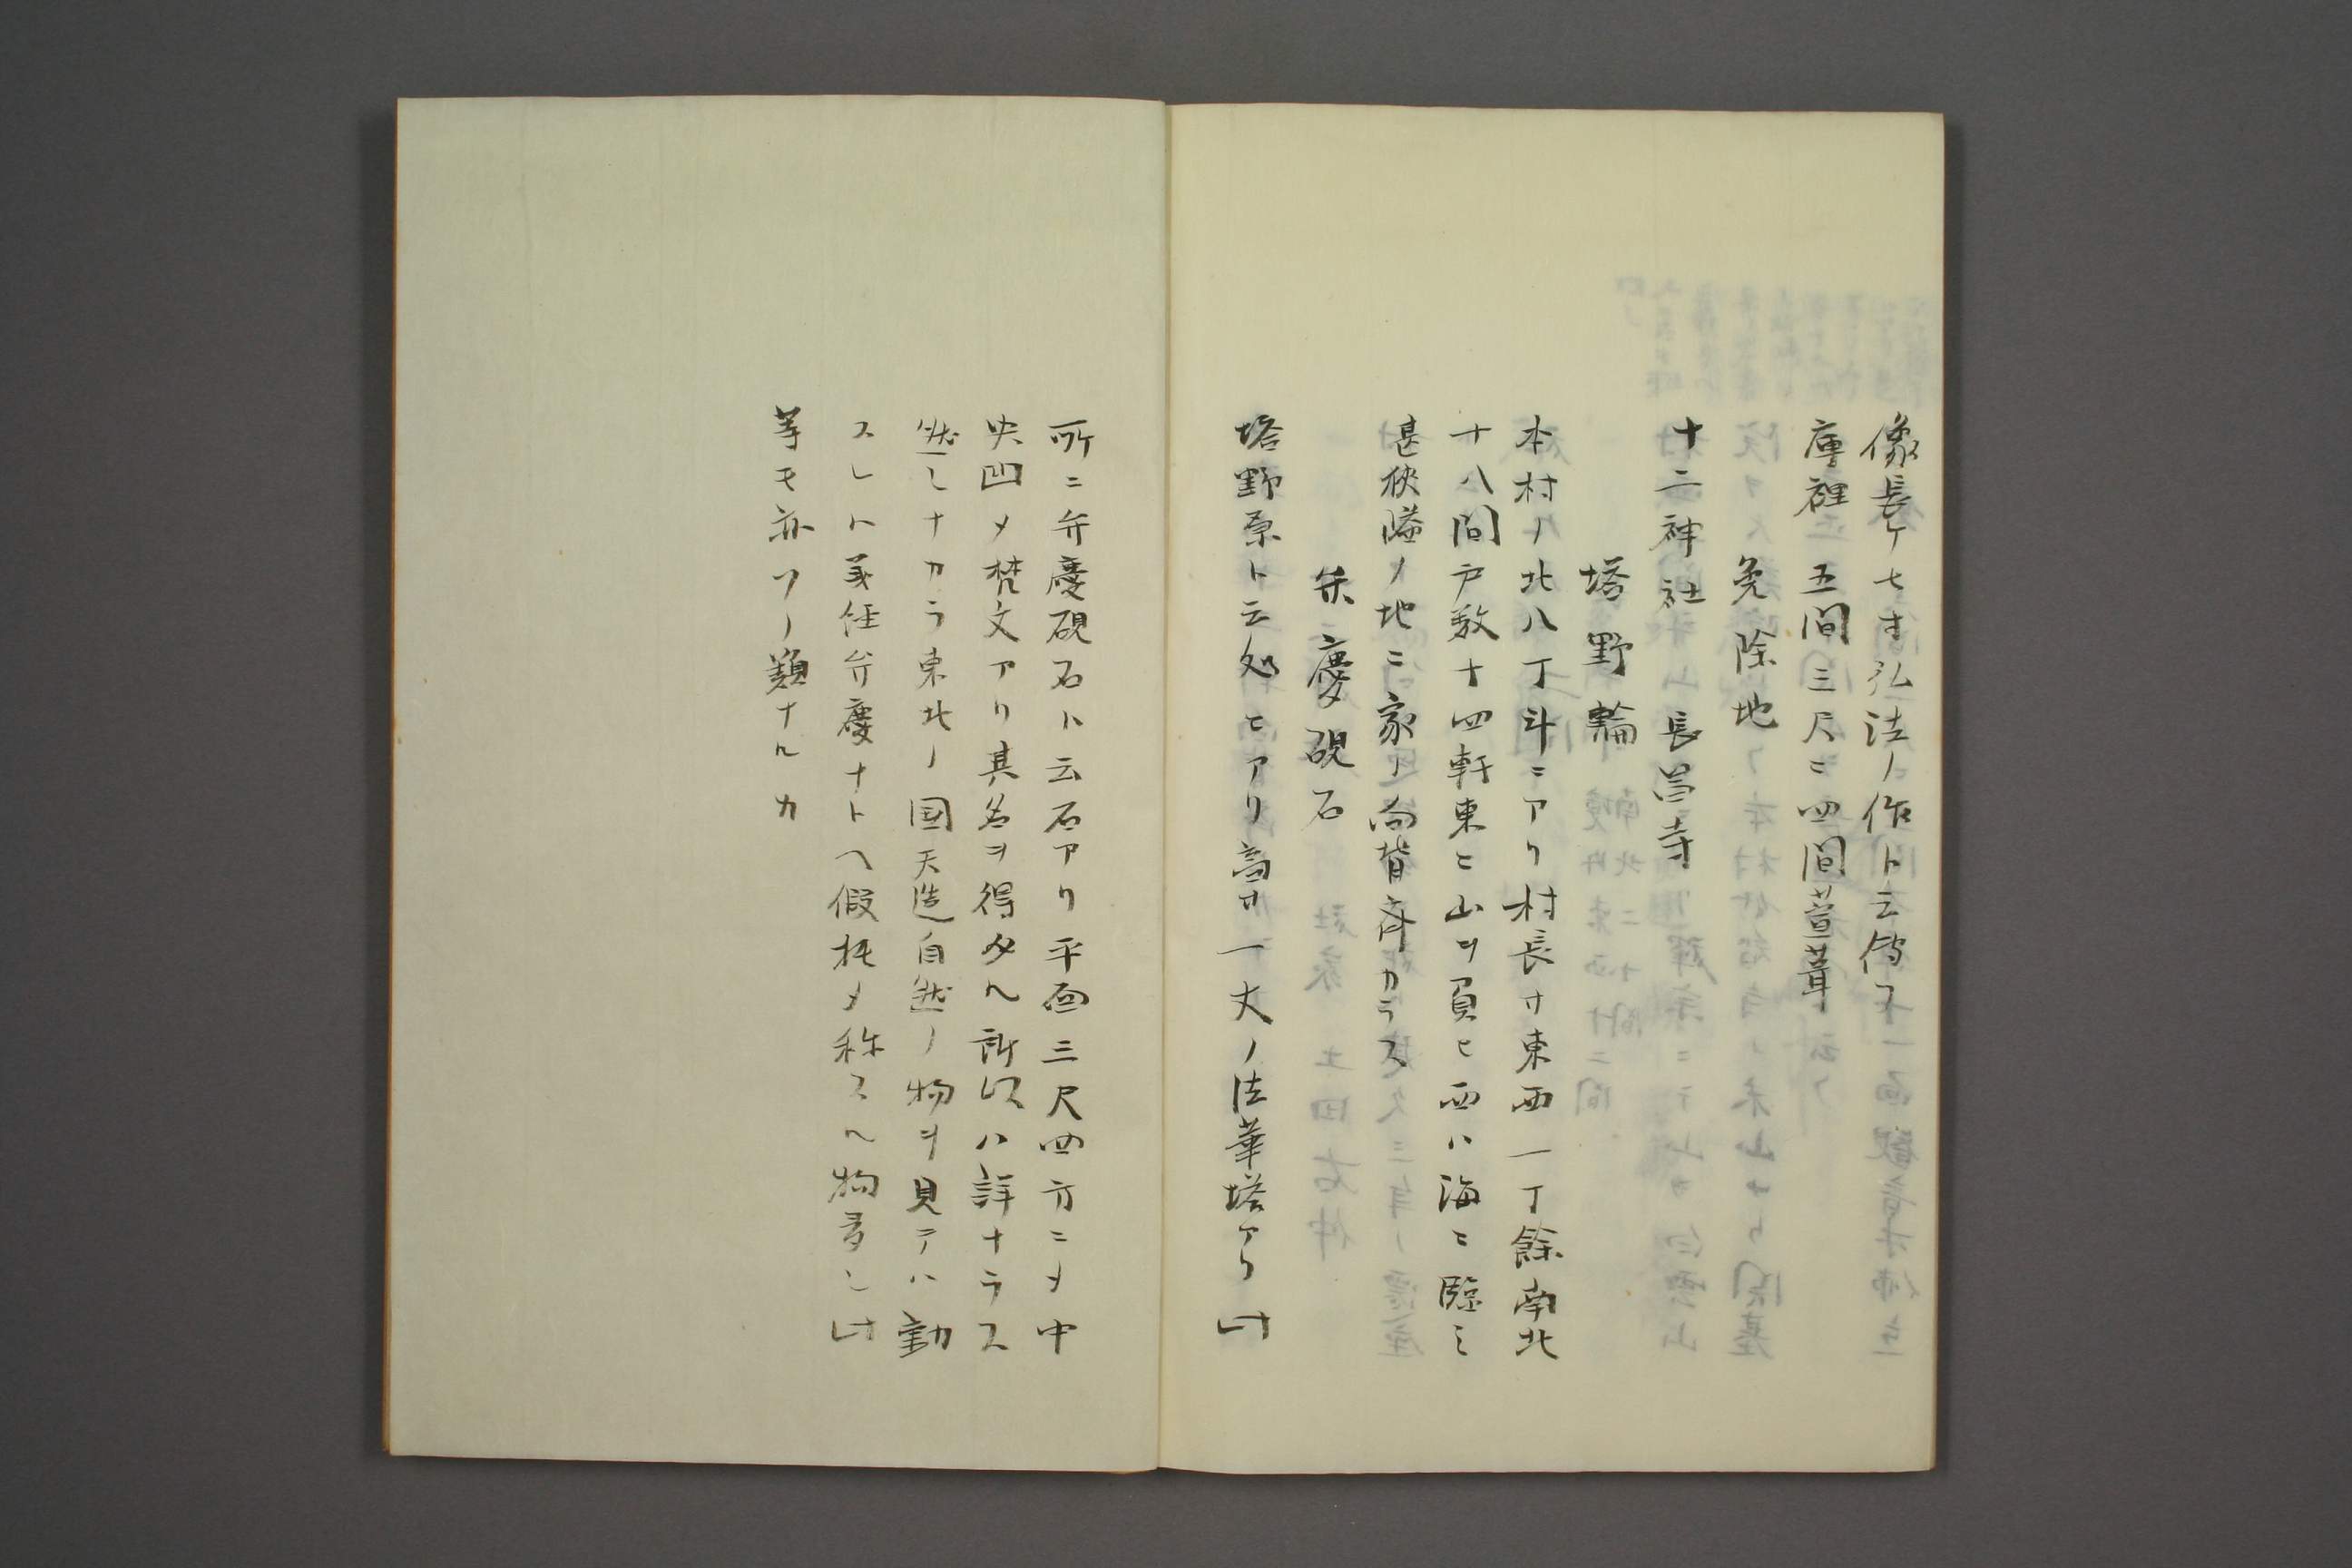 像長ケ七寸弘法ノ作ト云傳フ
庫裡 五間三尺ニ四間萱葺
免除地
十二神社 長昌寺
塔野輪
本村ノ北八丁斗ニアリ村長サ東西一丁餘南北
十八間戸数十四軒東ニ山ヲ負ヒ西ハ海ニ臨ミ
甚狹隘ノ地ニ家ノ向背斉カラス
弁慶硯石
塔野原ト云処ヒアリ高サ一丈ノ法華塔アリ此
所ニ弁慶硯石ト云石アリ平面三尺四方ニメ中
央凹メ梵文アリ其名ヲ得タル所以ハ詳ナラス
然シナカラ東北ノ国天造自然ノ物ヲ見テハ動
スレハ義経弁慶ナトヘ假托メ称スル物多シ此
等モ亦ソノ類ナルカ